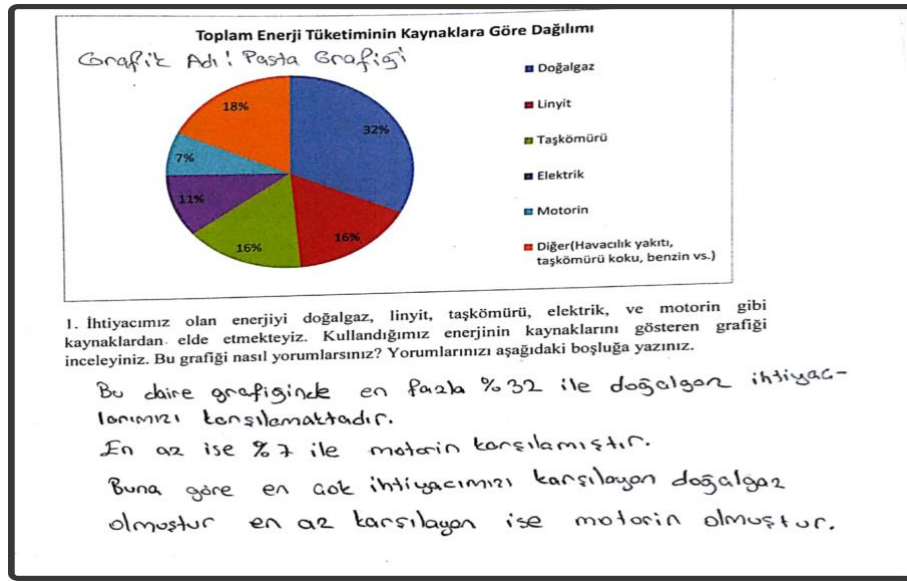 Toplam Enerji Tüketiminin Kaynaklara Göre Dağılımı
Grafik Adı: Pasta Grafiği
18%
32%
7%
11%
16%
16%
Doğalgaz
Linyit
Taşkömürü
Elektrik
Motorin
Diğer(Havacılık yakıtı,
taşkömürü koku, benzin vs.)
1. İhtiyacımız olan enerjiyi doğalgaz, linyit, taşkömürü, elektrik, ve motorin gibi
kaynaklardan elde etmekteyiz. Kullandığımız enerjinin kaynaklarını gösteren grafiği
inceleyiniz. Bu grafiği nasıl yorumlarsınız? Yorumlarınızı aşağıdaki boşluğa yazınız.
Bu daire grafiğinde en fazla %32 ile doğalgaz ihtiyaç-
larımızı karşılamaktadır.
En az ise %7 ile motorin karşılamıştır.
Buna göre en çok ihtiyacımızı karşılayan doğalgaz
olmuştur en az karşılayan ise motorin olmuştur.